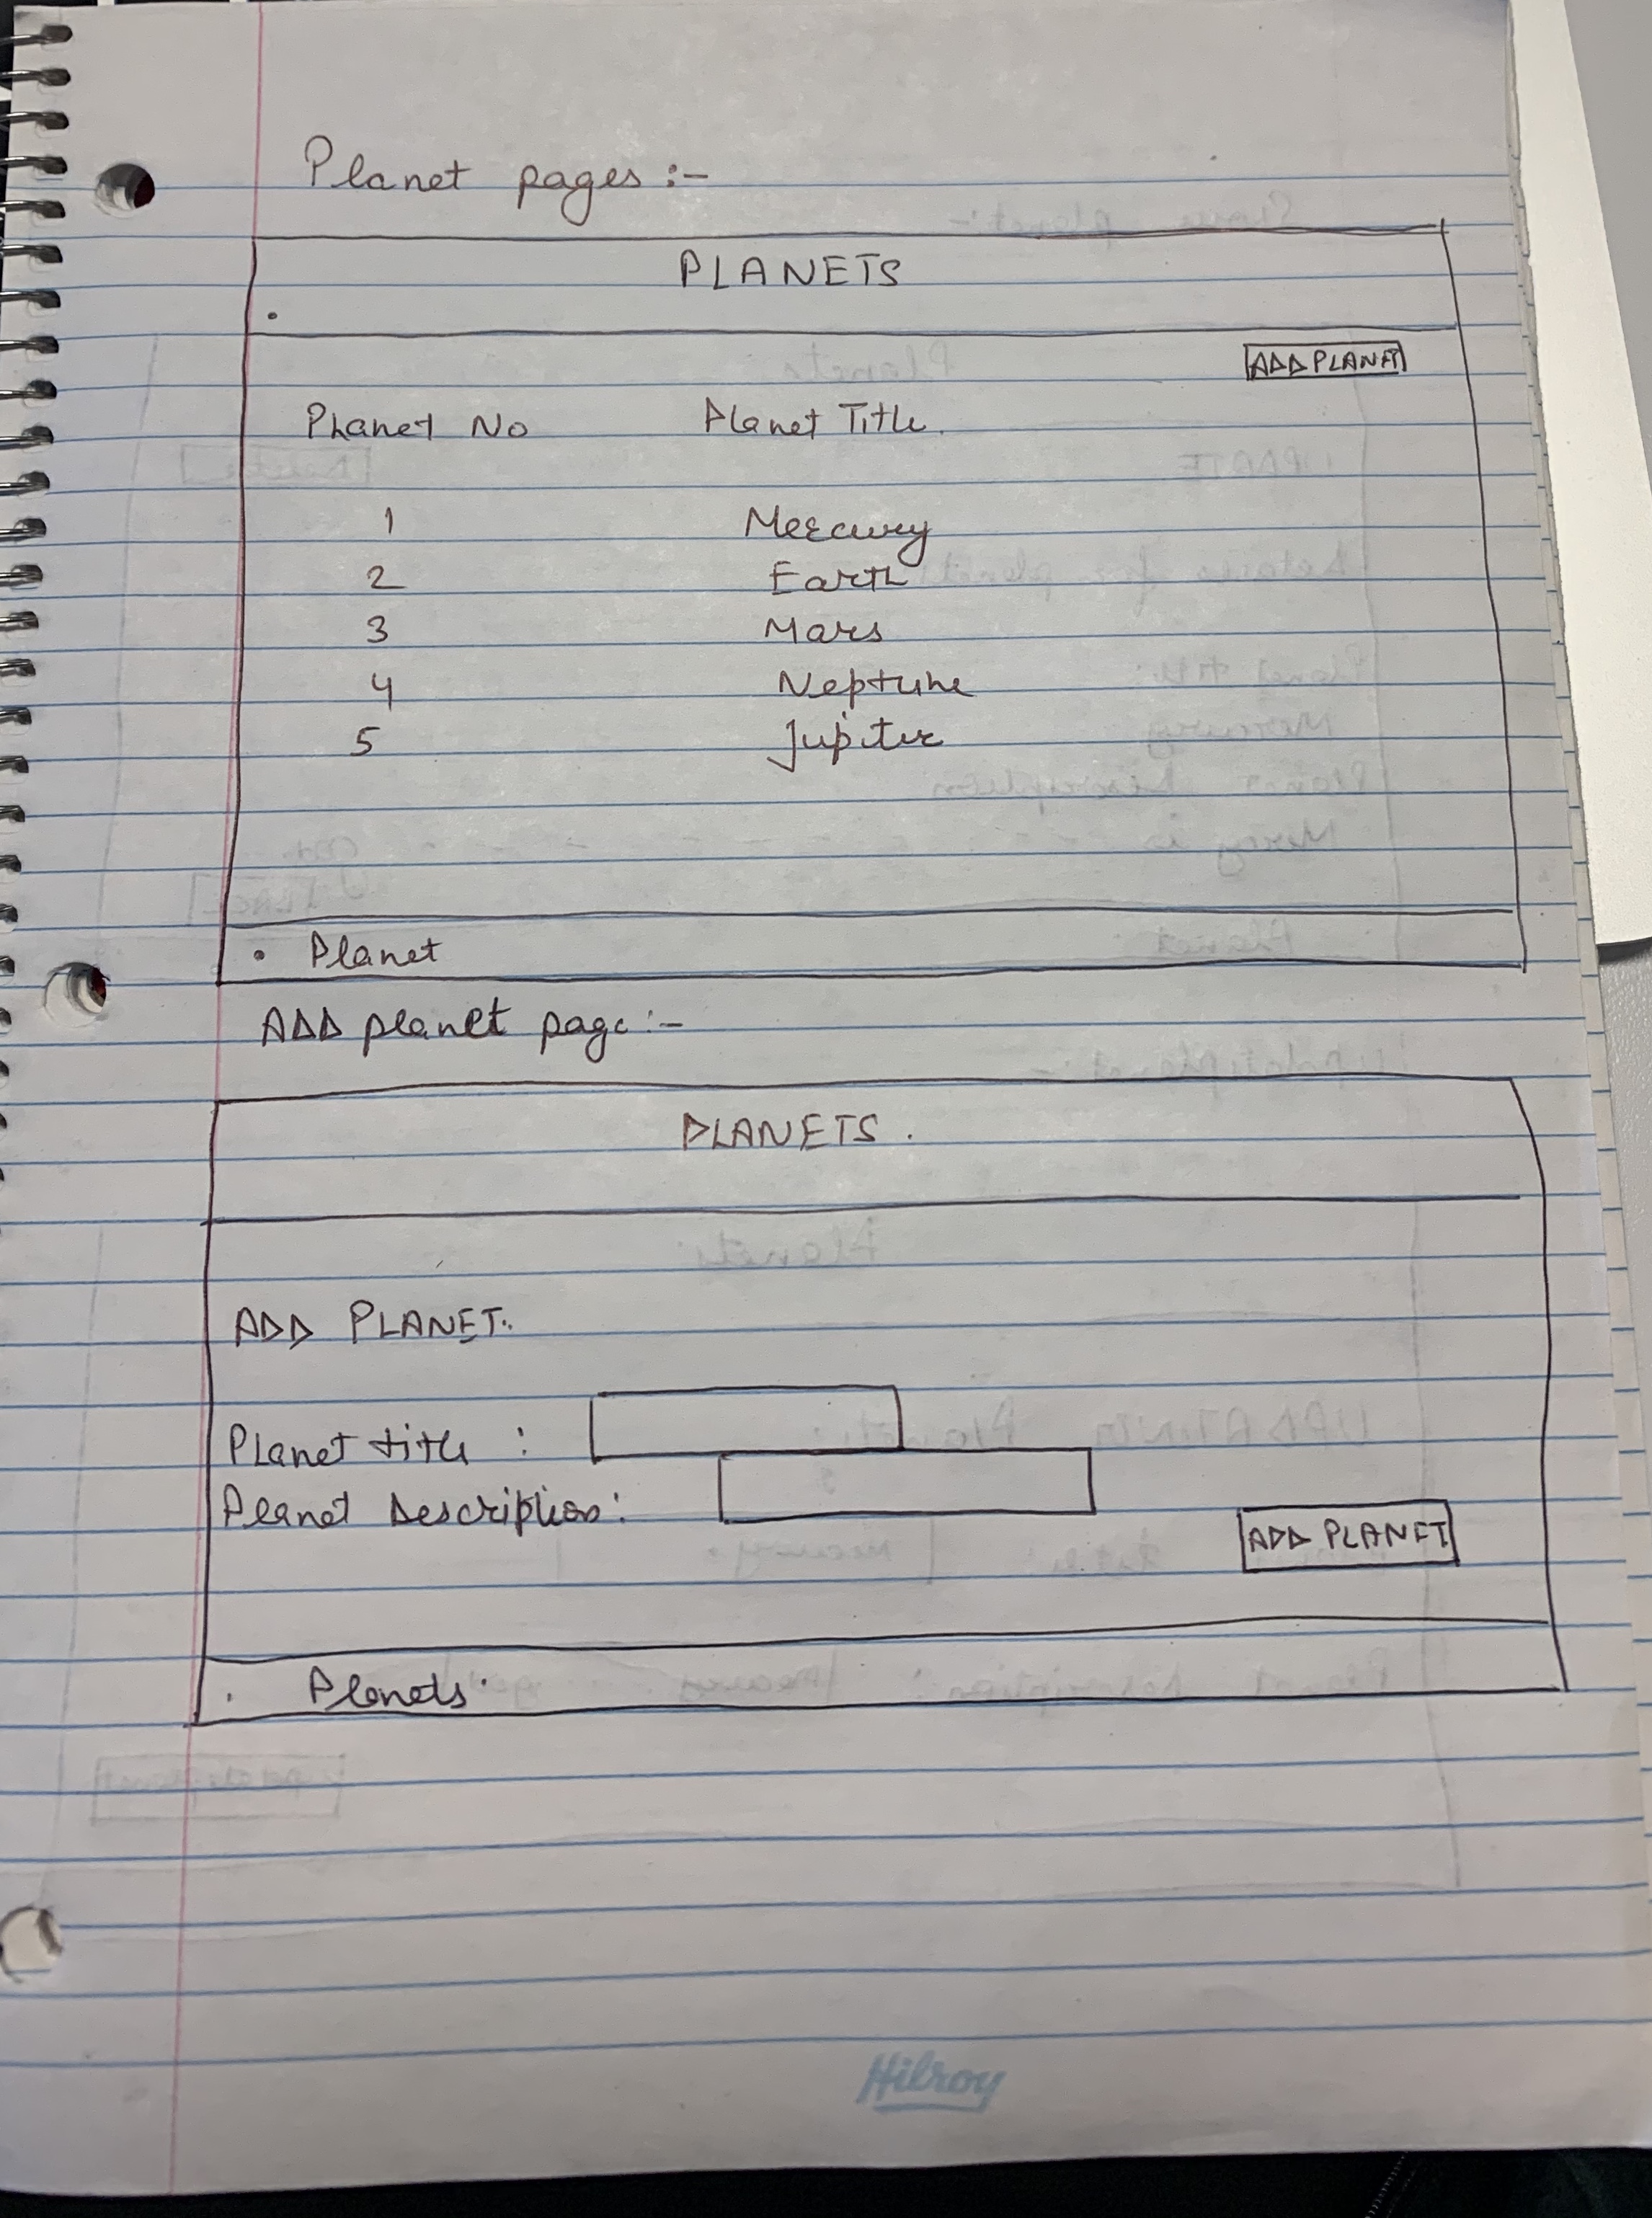 Planet pages :-
PLANETS
ADD PLANET
Planet No Planet Title
1 Mercury
2 Earth
3 Mars
4 Neptune
5 Jupiter
• Planet
ADD planet page :-
PLANETS.
ADD PLANET.
Planet title :
Planet Description :
ADD PLANET
. Planets.
Hilroy